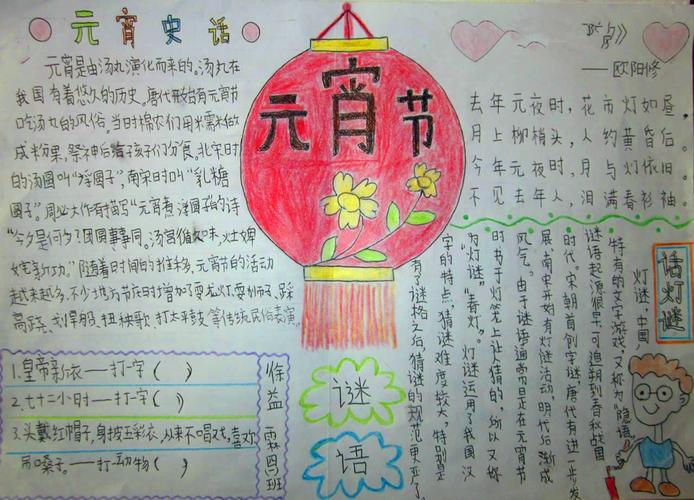 元宵史话
元宵是由汤丸演化而来的。汤丸在
我国有着悠久的历史。唐代开始有元宵节
吃汤丸的风俗。当时棉农们用米需米做
成米万果,祭神后给孩子们分食。北宋时
的汤圆叫“浮圆子”,南宋时叫“乳糖
圆子”。周必大作有描写“元宵煮浮圆子的诗
“今夕是何夕?团圆事事同。汤
。”随着时间的推移,元宵节的活动
越来越多,不少地方节庆时增加了耍龙灯耍狮子、踩
高跷、划旱船、扭秧歌、打太平鼓等传统民俗表演。
元宵节
——欧阳修
去年元夜时,花市灯如昼。
月上柳梢头,人约黄昏后。
今年元夜时,月与灯依旧。
不见去年人,泪满春衫袖。
话灯谜
灯谜,中国
特有的文字游戏,又称为“隐语。”
谜语起源很早,可追朔到春秋战国
时代。宋朝首創字谜,唐代有进一步发
展,南宋开始有灯谜活动,明代后渐成
风气。由于谜语普遍而且是在元宵节
时书于灯笼上让人猜的,所以又称
为“灯谜”“春灯”。灯谜运用了我国汉
字的特点,猜谜难度较大,特别是
有了谜格之后,猜谜的规范更严了。
1.皇帝新衣——打一字( )
2.七十二小时——打一字( )
3.头戴红帽子,身披五彩衣,从来不唱戏,喜欢
吊嗓子。——打一动物( )
徐益霖 四班
谜
语